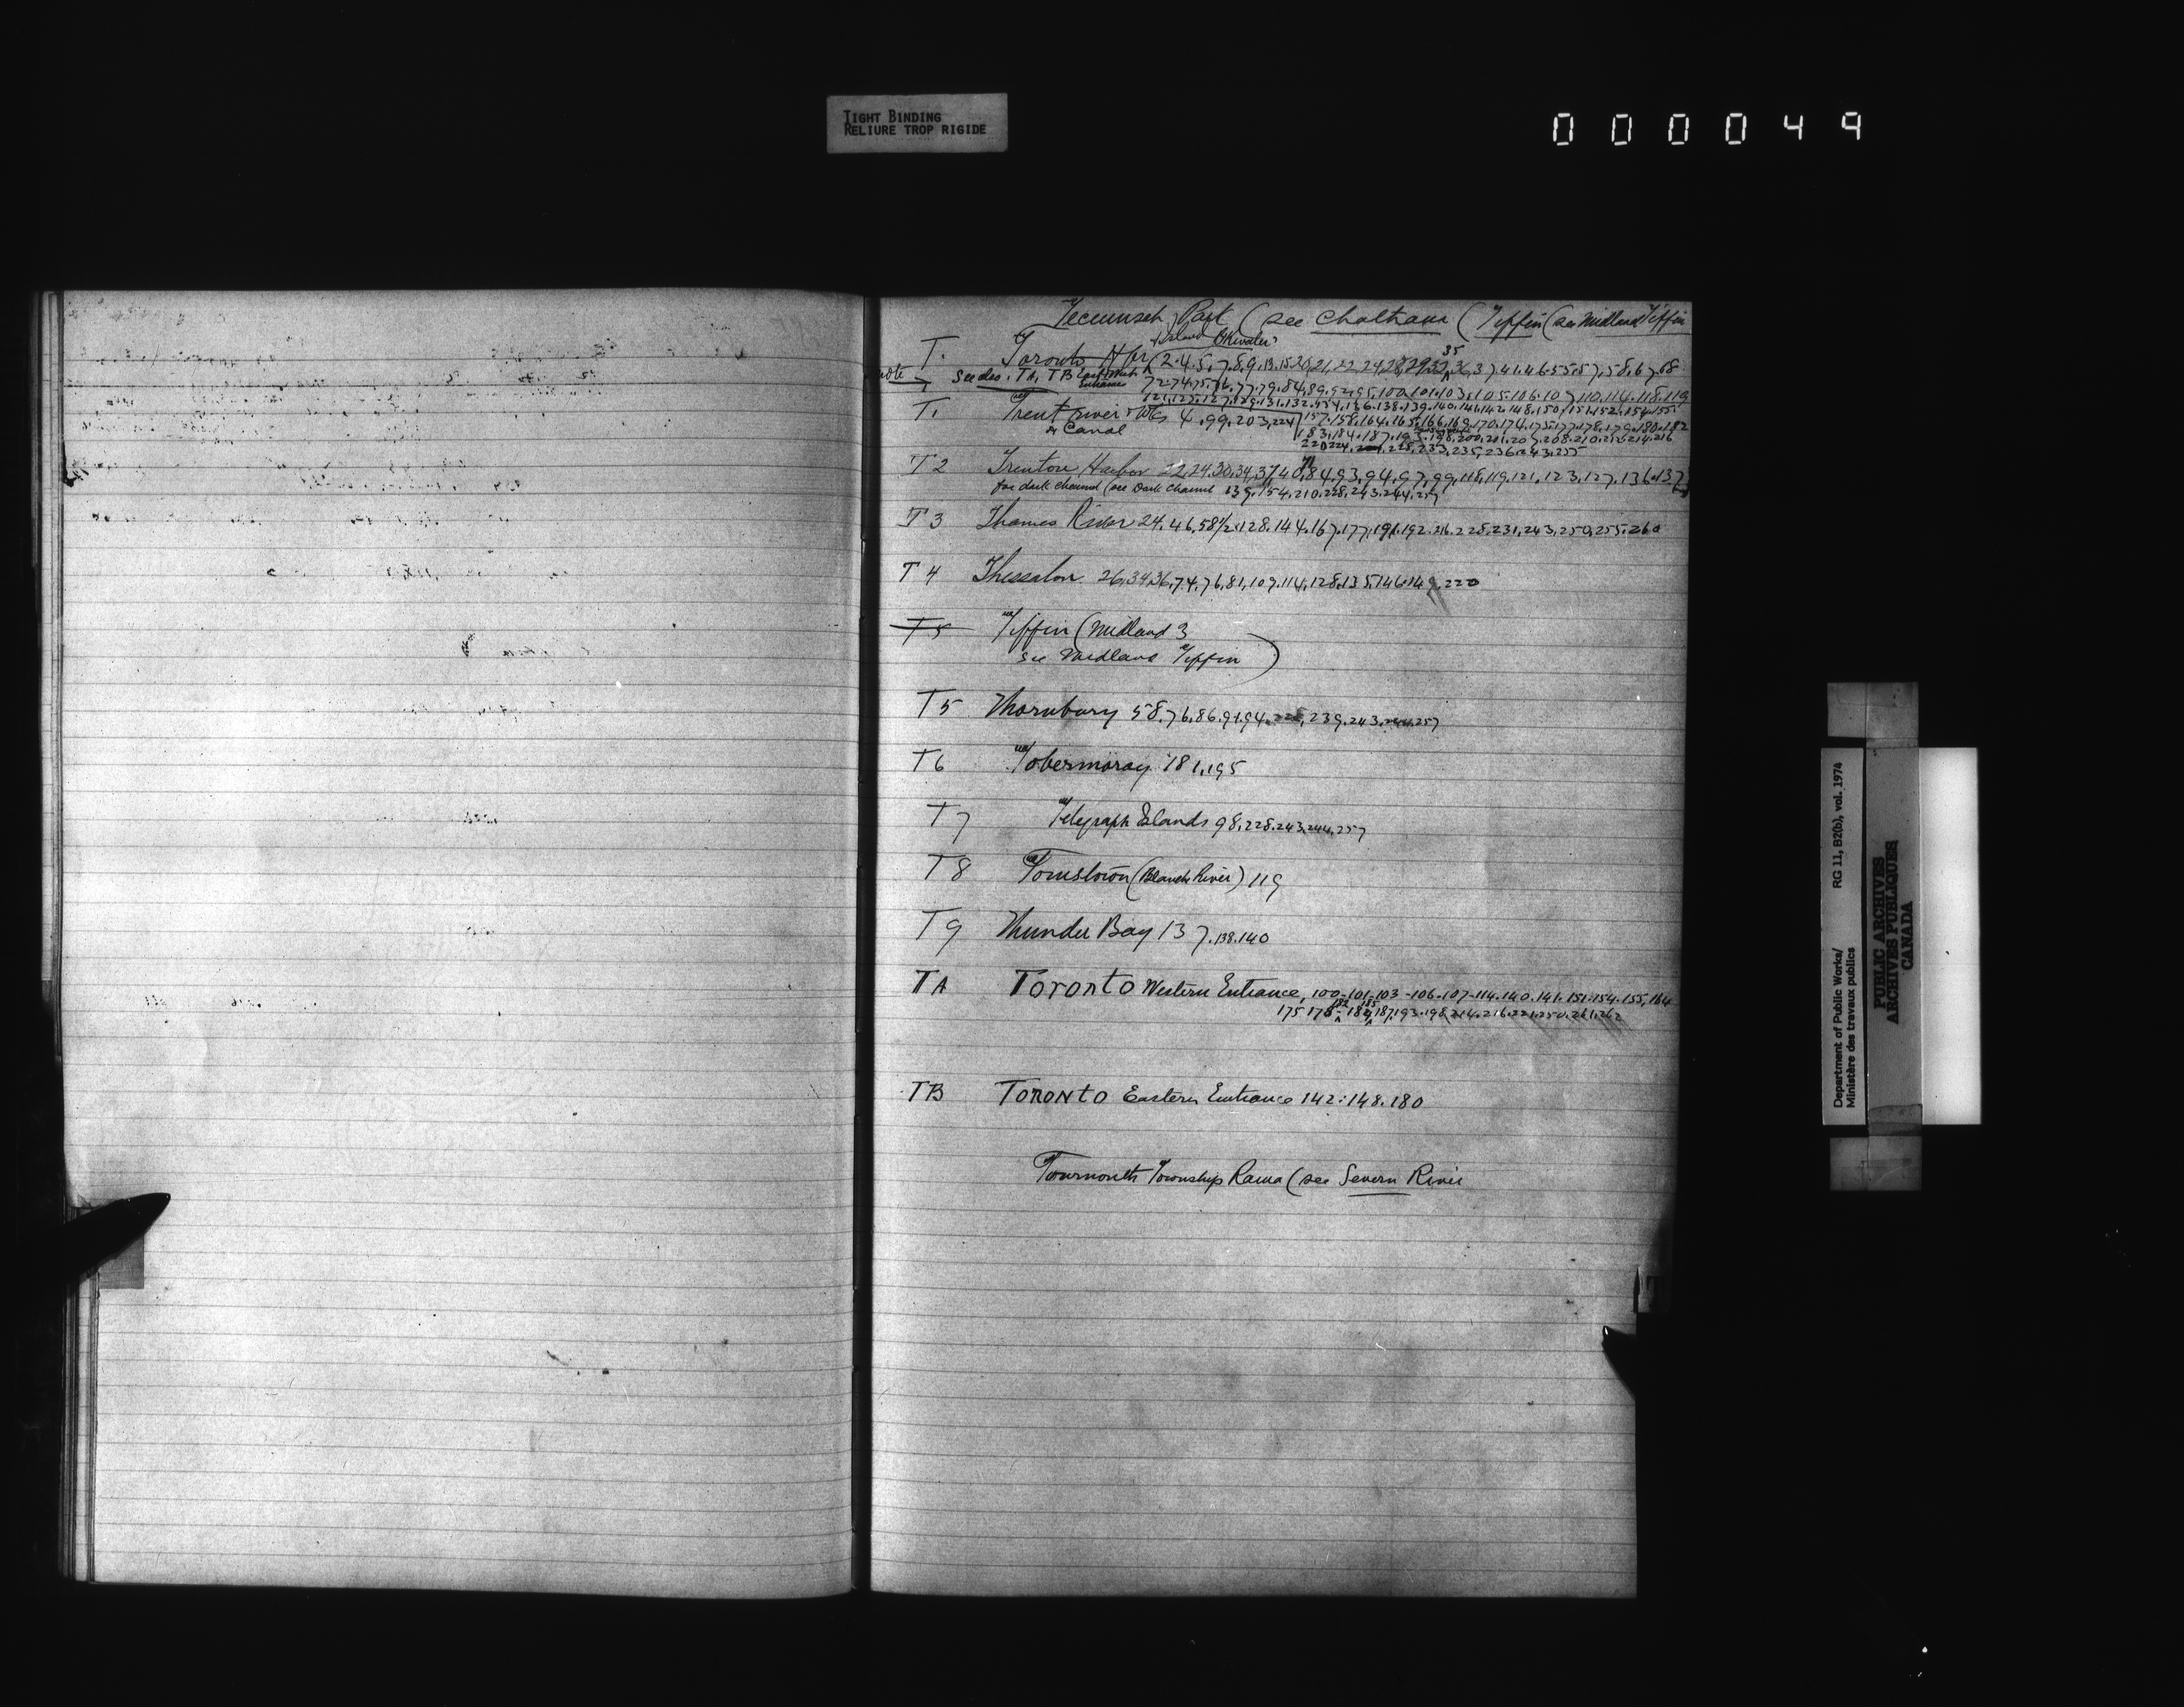 TIGHT BINDING
RELIURE TROP RIGIDE
000049
Tecumseh Park (see Chatham (Tiffin (see Midland Tiffin
Island Breakwater
35
T. Toronto Hbr 2.4.5.7.8.9.13.15.20.21.22.24.28.29.32.36.37.41.46.55.57.58.67.68
note see also. TA, TB East & West Entrance 72.74.75.76.77.79.84.89.92.95.100.101.103.105.106.107.110.114.118.119
121.123.127.129.131.132.134.136.138.139.140.141.142.148.150.151.152.154.155
T1 Trent river 4.99.203,224 157.158.164.165.166.169.170.174.175.177.178.179.180.182
or Canal 183.184.187.193.198.200.201.207.208.210.212.214.216
220.224. 228.233.235.236.243.255
T2 Trenton Harbor 22,24,30,34,37,40,84,93,94,97,99,118,119,121,123,127,136.137
for dark channel (see Dark Channel 139.154.210.228.243.244.257
T3 Thames River 24.46,58½.128.144.167.177.191.192.216.228.231,243,250,255.260
T4 Thessalon 26,34,36,74,76,81,109.114,128,135,146.149.220
T5 Tiffin (Midland 3
see Midland Tiffin )
T5 Thornbury 58.76.86.91.94.228,239.243.244.257
T6 Tobermoray 181,195
T7 Telegraph Islands 98.228.243.244.257
T8 Tomstown (Blanch River) 119
T9 Thunder Bay 137.138.140
TA Toronto Western Entrance, 100-101-103-106-107-114.140.141.151.154.155,164
182 185
175 178-184,187.193.198.214.216.221.250.261.262
TB TORONTO Eastern Entrance 142.148.180
Township Rama (see Severn River
T
Department of Public Works/ RG 11, B2(b), vol. 1974
Ministère des travaux publics
PUBLIC ARCHIVES
ARCHIVES PUBLIQUES
CANADA